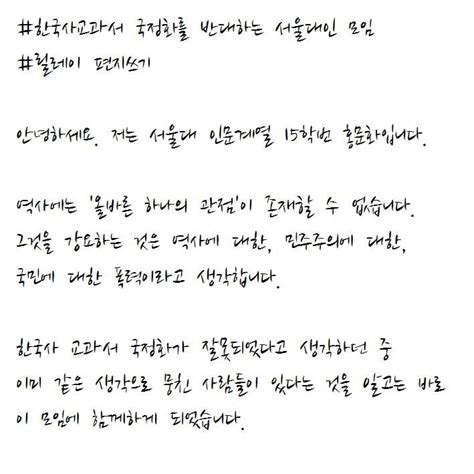 #한국사교과서 국정화를 반대하는 서울대인 모임
#릴레이 편지쓰기
안녕하세요. 저는 서울대 인문계열 15학번 홍문화입니다.
역사에는 '올바른 하나의 관점'이 존재할 수 없습니다.
그것을 강요하는 것은 역사에 대한, 민주주의에 대한,
국민에 대한 폭력이라고 생각합니다.
한국사 교과서 국정화가 잘못되었다고 생각하던 중
이미 같은 생각으로 뭉친 사람들이 있다는 것을 알고는 바로
이 모임에 함께하게 되었습니다.